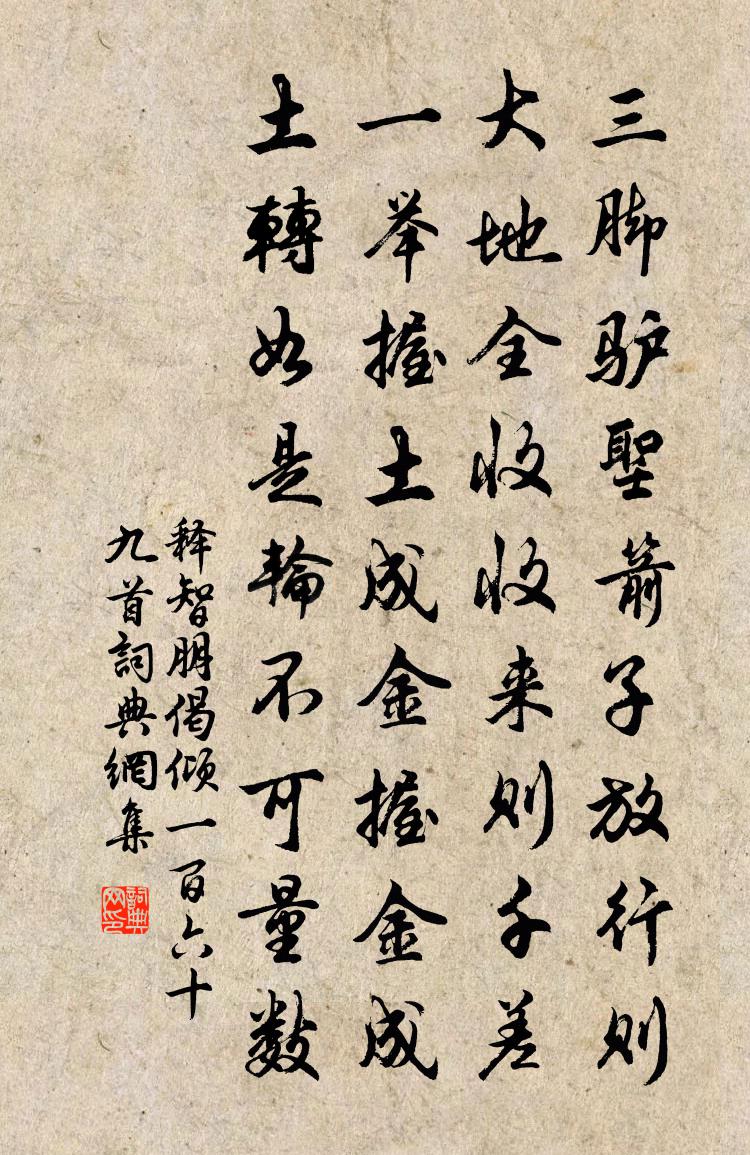 三脚驴聖箭子放行则
大地全收收来则千差
一举握土成金握金成
土轉如是輪不可量数
释智朋偈倾一百六十
九首詞典網集
詞典
网印